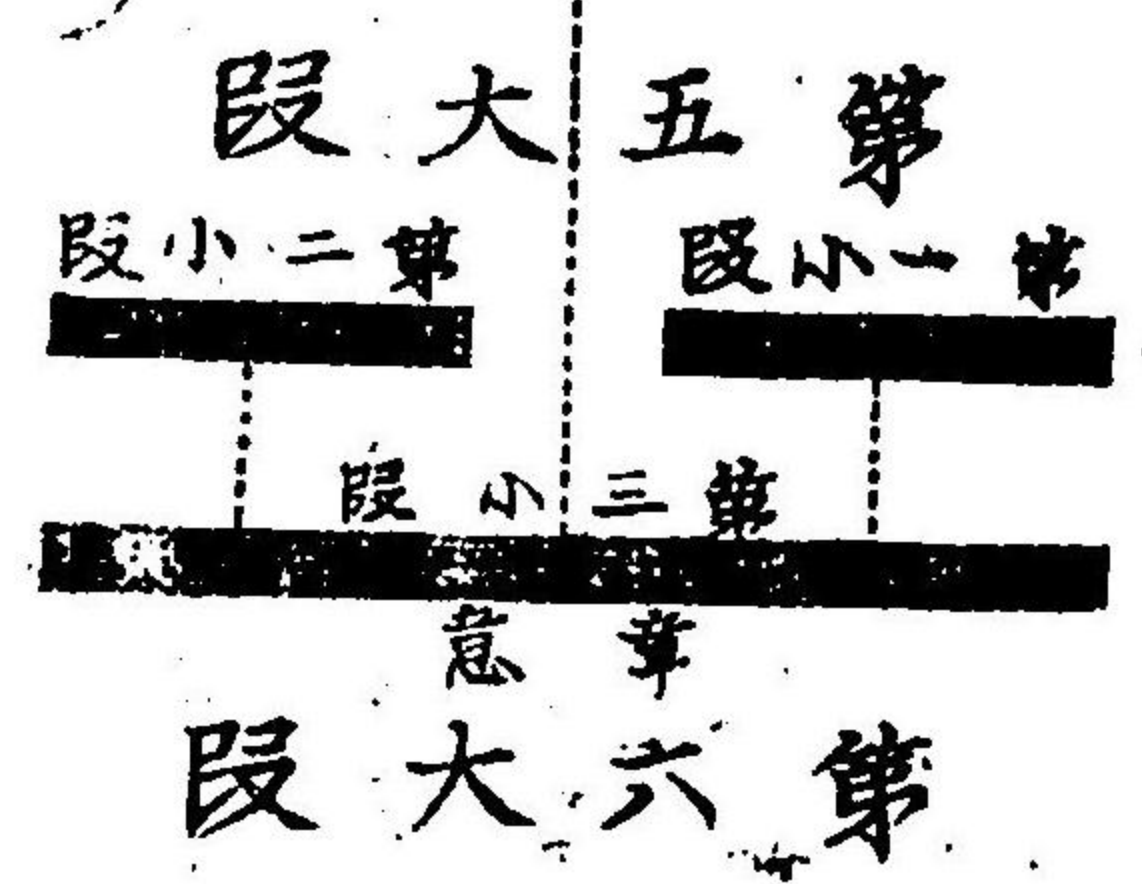 第五大段
第一小段
第二小段
第三小段
章意
第六大段